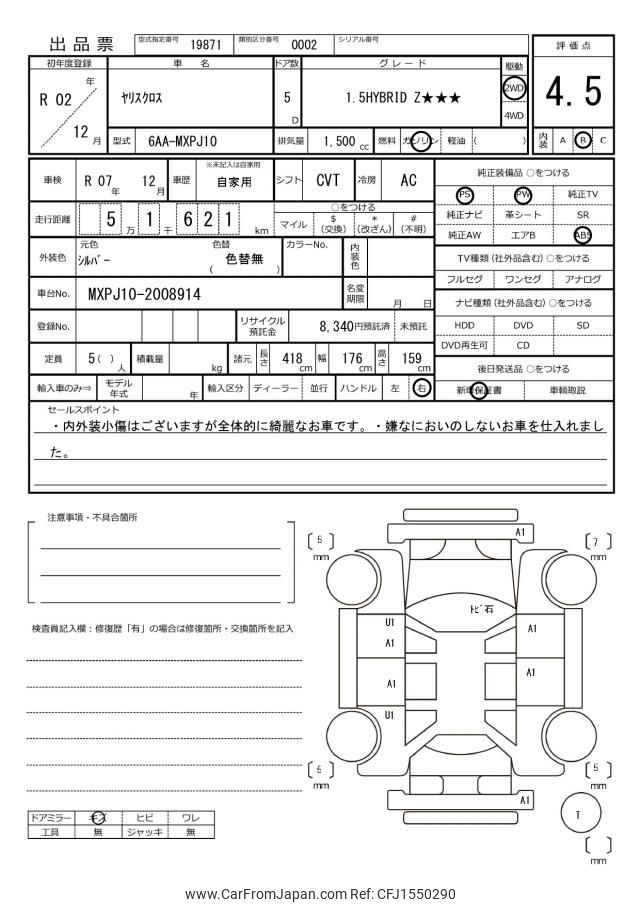 出品票 型式指定番号 19871 類別区分番号 0002 シリアル番号
初年度登録 車 名 ドア数 グレード 駆動 評価点
R 02 年 12 月 ヤリスクロス 5 D 1.5HYBRID Z★★★ 2WD 4WD 4.5
型式 6AA-MXPJ10 排気量 1,500 cc 燃料 ガソリン 軽油 ( ) 内装 A B C
車検 R 07 年 12 月 車歴 ※未記入は自家用 自家用 シフト CVT 冷房 AC
走行距離 5 万 1 千 6 2 1 km ○をつける
マイル $ (交換) * (改ざん) # (不明)
外装色 元色 シルバー 色替 ( 色替無 ) カラーNo. 内装色
車台No. MXPJ10-2008914 名変期限 月 日
登録No. リサイクル預託金 8,340円預託済 未預託
定員 5( ) 人 積載量 kg 諸元 長さ 418 cm 幅 176 cm 高さ 159 cm
輸入車のみ⇒ モデル年式 年 輸入区分 ディーラー 並行 ハンドル 左 右
純正装備品 ○をつける
PS PW 純正TV
純正ナビ 革シート SR
純正AW エアB ABS
TV種類(社外品含む)○をつける
フルセグ ワンセグ アナログ
ナビ種類(社外品含む)○をつける
HDD DVD SD
DVD再生可 CD
後日発送品 ○をつける
新車保証書 車輌取説
セールスポイント
・内外装小傷はございますが全体的に綺麗なお車です。・嫌なにおいのしないお車を仕入れまし
た。
注意事項・不具合箇所
検査員記入欄：修復歴「有」の場合は修復箇所・交換箇所を記入
ドアミラー キズ ヒビ ワレ
工具 無 ジャッキ 無
A1
5 mm
7 mm
トビ石
U1
A1
A1
A1
A1
U1
5 mm
5 mm
A1
T
mm
www.CarFromJapan.com Ref: CFJ1550290